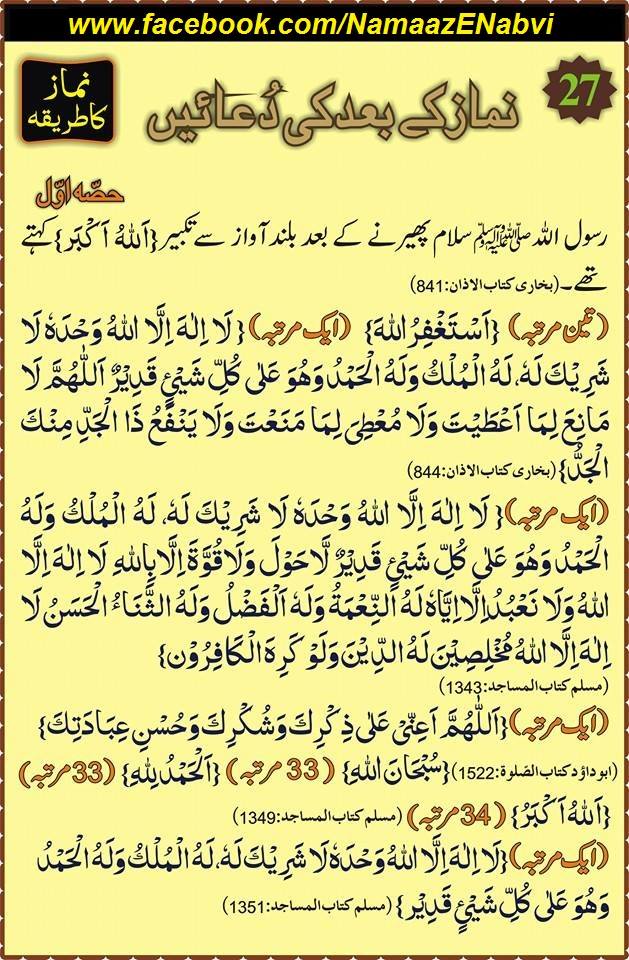 www.facebook.com/NamaazENabvi
27
نماز کے بعد کی دُعائیں
نماز
کا طریقہ
حصّہ اوّل
رسول اللہ ﷺ سلام پھیرنے کے بعد بلند آواز سے تکبیر {اَللهُ اَكْبَر} کہتے
تھے۔ (بخاری کتاب الاذان:841)
(تین مرتبہ) {اَسْتَغْفِرُ اللهَ} (ایک مرتبہ) {لَا اِلٰهَ اِلَّا اللهُ وَحْدَهٗ لَا
شَرِيْكَ لَهٗ، لَهُ الْمُلْكُ وَلَهُ الْحَمْدُ وَهُوَ عَلٰى كُلِّ شَيْئٍ قَدِيْرٌ اَللّٰهُمَّ لَا
مَانِعَ لِمَا اَعْطَيْتَ وَلَا مُعْطِيَ لِمَا مَنَعْتَ وَلَا يَنْفَعُ ذَا الْجَدِّ مِنْكَ
الْجَدُّ} (بخاری کتاب الاذان:844)
(ایک مرتبہ) {لَا اِلٰهَ اِلَّا اللهُ وَحْدَهٗ لَا شَرِيْكَ لَهٗ، لَهُ الْمُلْكُ وَلَهُ
الْحَمْدُ وَهُوَ عَلٰى كُلِّ شَيْئٍ قَدِيْرٌ لَّا حَوْلَ وَلَا قُوَّةَ اِلَّا بِاللهِ لَا اِلٰهَ اِلَّا
اللهُ وَلَا نَعْبُدُ اِلَّا اِيَّاهُ لَهُ النِّعْمَةُ وَلَهُ الْفَضْلُ وَلَهُ الثَّنَاءُ الْحَسَنُ لَا
اِلٰهَ اِلَّا اللهُ مُخْلِصِيْنَ لَهُ الدِّيْنَ وَلَوْ كَرِهَ الْكَافِرُوْن}
(مسلم کتاب المساجد:1343)
(ایک مرتبہ) {اَللّٰهُمَّ اَعِنِّيْ عَلٰى ذِكْرِكَ وَشُكْرِكَ وَحُسْنِ عِبَادَتِكَ}
(ابوداؤد کتاب الصلوة:1522) {سُبْحَانَ اللهِ} (33 مرتبہ) {اَلْحَمْدُ لِلّٰهِ} (33 مرتبہ)
{اَللهُ اَكْبَرُ} (34 مرتبہ) (مسلم کتاب المساجد:1349)
(ایک مرتبہ) {لَا اِلٰهَ اِلَّا اللهُ وَحْدَهٗ لَا شَرِيْكَ لَهٗ، لَهُ الْمُلْكُ وَلَهُ الْحَمْدُ
وَهُوَ عَلٰى كُلِّ شَيْئٍ قَدِيْر} (مسلم کتاب المساجد:1351)